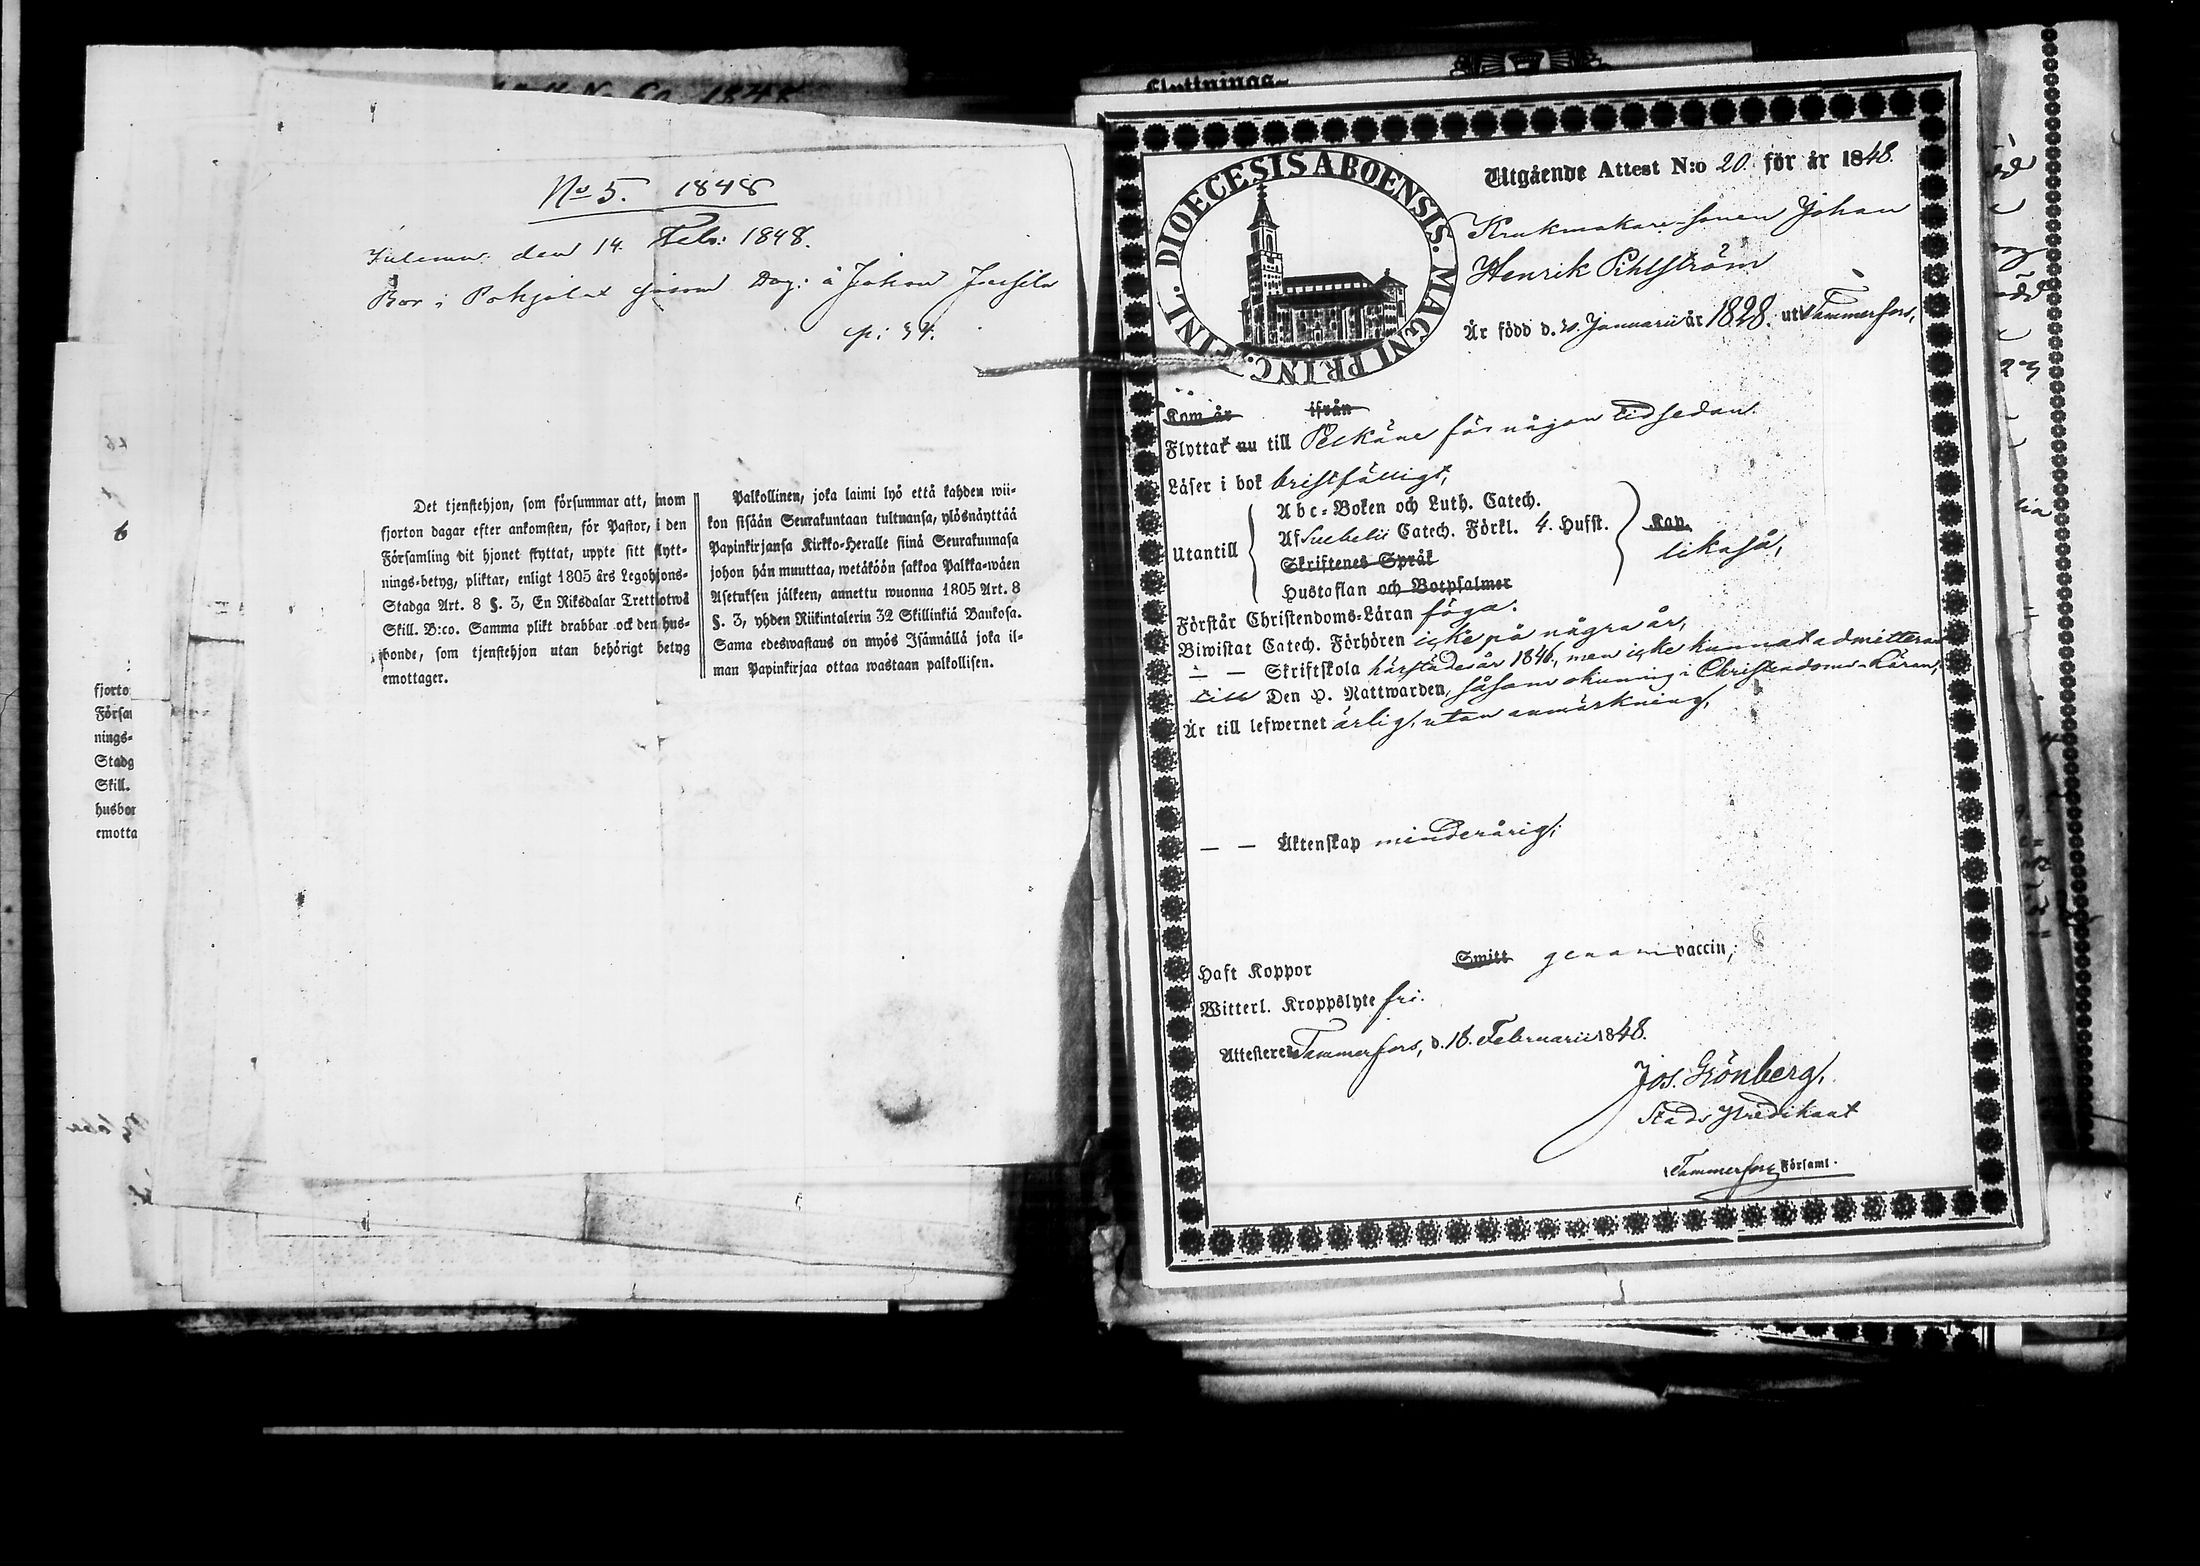 No 5. 1848
den 14. Febr: 1848.
Bor i Pohjalax såsom Dräg: å Johan
p: 34.
Det tjenstehjon, som försummar att, inom
fjorton dagar efter ankomsten, för Pastor, i den
Församling dit hjonet flyttat, uppte sitt flytt-
nings-betyg, pliktar, enligt 1805 års Legohjons-
Stadga Art. 8 §. 3, En Riksdalar Trettiotwå
Skill. B:co. Samma plikt drabbar ock den hus-
bonde, som tjenstehjon utan behörigt betyg
emottager.
Palkollinen, joka laimi lyö että kahden wii-
kon sisään Seurakuntaan tultuansa, ylösnäyttää
Papinkirjansa Kirkko-Heralle siinä Seurakunnasa
johon hän muuttaa, wetäköön sakkoa Palkka-wäen
Asetuksen jälkeen, annettu wuonna 1805 Art. 8
§. 3, yhden Riikintalerin 32 Skillinkiä Bankosa.
Sama edeswastaus on myös Isännällä joka il-
man Papinkirjaa ottaa wastaan palkollisen.
fjorto
Försa
nings-
Stadg
Skill.
husbon
emotta
Flyttnings-
DIOECESIS ABOENSIS. MAGNI PRINC. FINL.
Utgående Attest N:o 20. för år 1848.
Krukmakare sonen Johan
Henrik Pihlström
Är född d. 20. Januarii år 1828. uti Tammerfors,
Kom år ifrån
Flyttat nu till Pelkäne för någon tid sedan.
Läser i bok bristfälligt,
Utantill
Abc-Boken och Luth. Catech.
Af Suebelii Catech. Förkl. 4. Hufst.
Skriftenes Språk
Hustaflan och Botpsalmer
Kap.
likaså,
Förstår Christendoms-Läran föga.
Biwistat Catech. Förhören icke på några år,
— — Skriftskola härstädes år 1846, men icke kunnat admitteras
till Den H. Nattwarden, såsom okunnig i Christendoms-Läran,
Är till lefwernet ärlig, utan anmärkning,
— — Äktenskap minderårig;
Haft Koppor Smitt genom vaccin;
Witterl. Kroppslyte fri.
Attesteres Tammerfors, d. 18. Februarii 1848.
Jos. Grönberg,
Stads Predikant
i Tammerfors Församl.